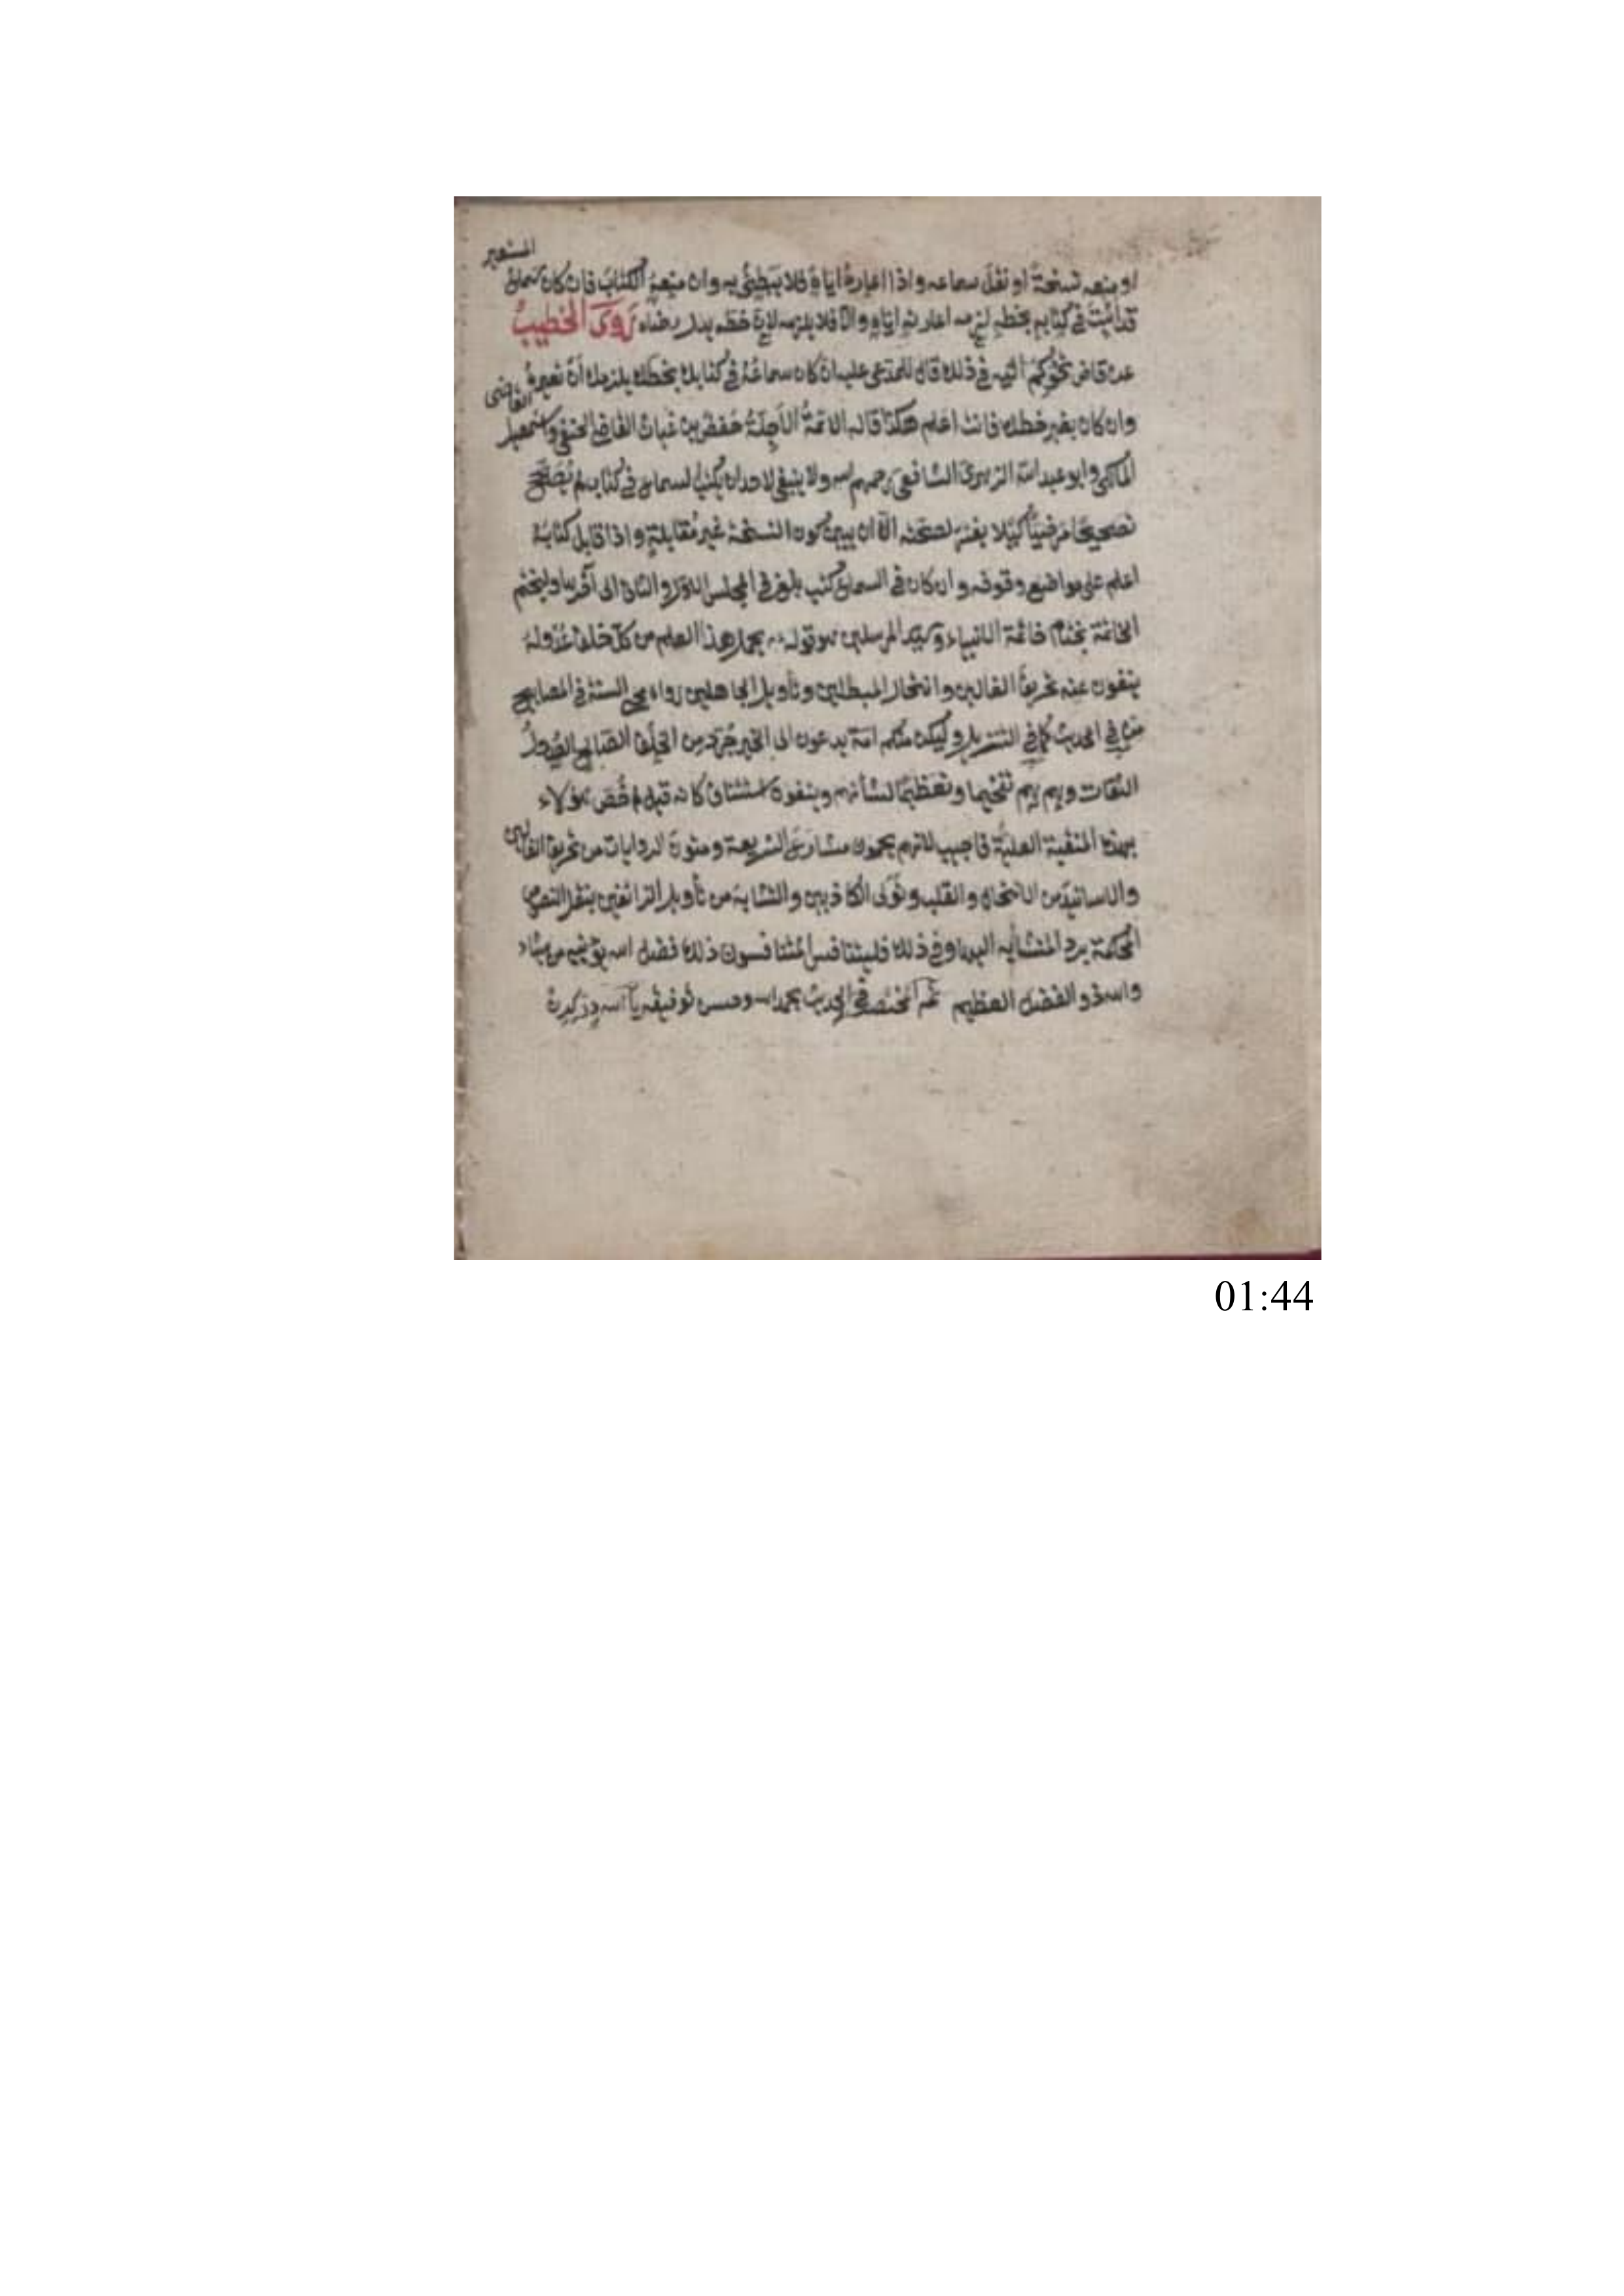 المستعير
او منعه نسخة او نقل سماعه واذا اعاره اياه فلا يبطئ به وان منعه الكتاب فان كان سماع
قد اثبت في كتابه بخطه لزمه اعارته اياه والا فلا يلزمه لان خطه يدل رضاه روى الخطيب
عن قاض تحوكم اليه في ذلك قال للمدعى عليه ان كان سماعه في كتابك بخطك يلزمك ان تعيره
القاضى
وان كان بغير خطك فانت اعلم هكذا قاله الائمة الاجلة حفص بن غياث القاضي الحنفي واسمعيل
المالكي وابو عبد الله الزبيري الشافعي رحمهم الله ولا ينبغي لاحد ان يكتب السماع في كتاب لم يصحح
تصحيحا مرضيا كيلا يغتر لصحته الا ان يبين كون النسخة غير مقابلة واذا قابل كتابه
اعلم على مواضع وقوفه وان كان في السماع كتب بلغ في المجلس الاول والثاني الى آخرها ولنختم
الخاتمة بختام خاتمة الانبياء وسيد المرسلين هو قوله يحمل هذا العلم من كل خلف عدوله
ينفون عنه تحريف الغالين وانتحال المبطلين وتأويل الجاهلين رواه محي السنة في المصابيح
من في الحديث كما في التنزيل ولتكن منكم امة يدعون الى الخير جرد من الخلف الصالح العدول
الثقات وهم هم تفخيما وتعظيما لشأنهم وينفون استئناف كانه قيل لم خص هؤلاء
بهذه المنقبة العلية فاجيب لانهم يحمون مشارع الشريعة ومتون الروايات من تحريف الغالين
والاسانيد من الانتحال والقلب الكاذبين والتشابه من تأويل الزائغين بنقل النصوص
المحكمة برد المتشابه اليها وفي ذلك فليتنافس المتنافسون ذلك فضل الله يؤتيه من يشاء
والله ذو الفضل العظيم تم المختصر في الحديث بحمد الله وحسن توفيقه
01:44